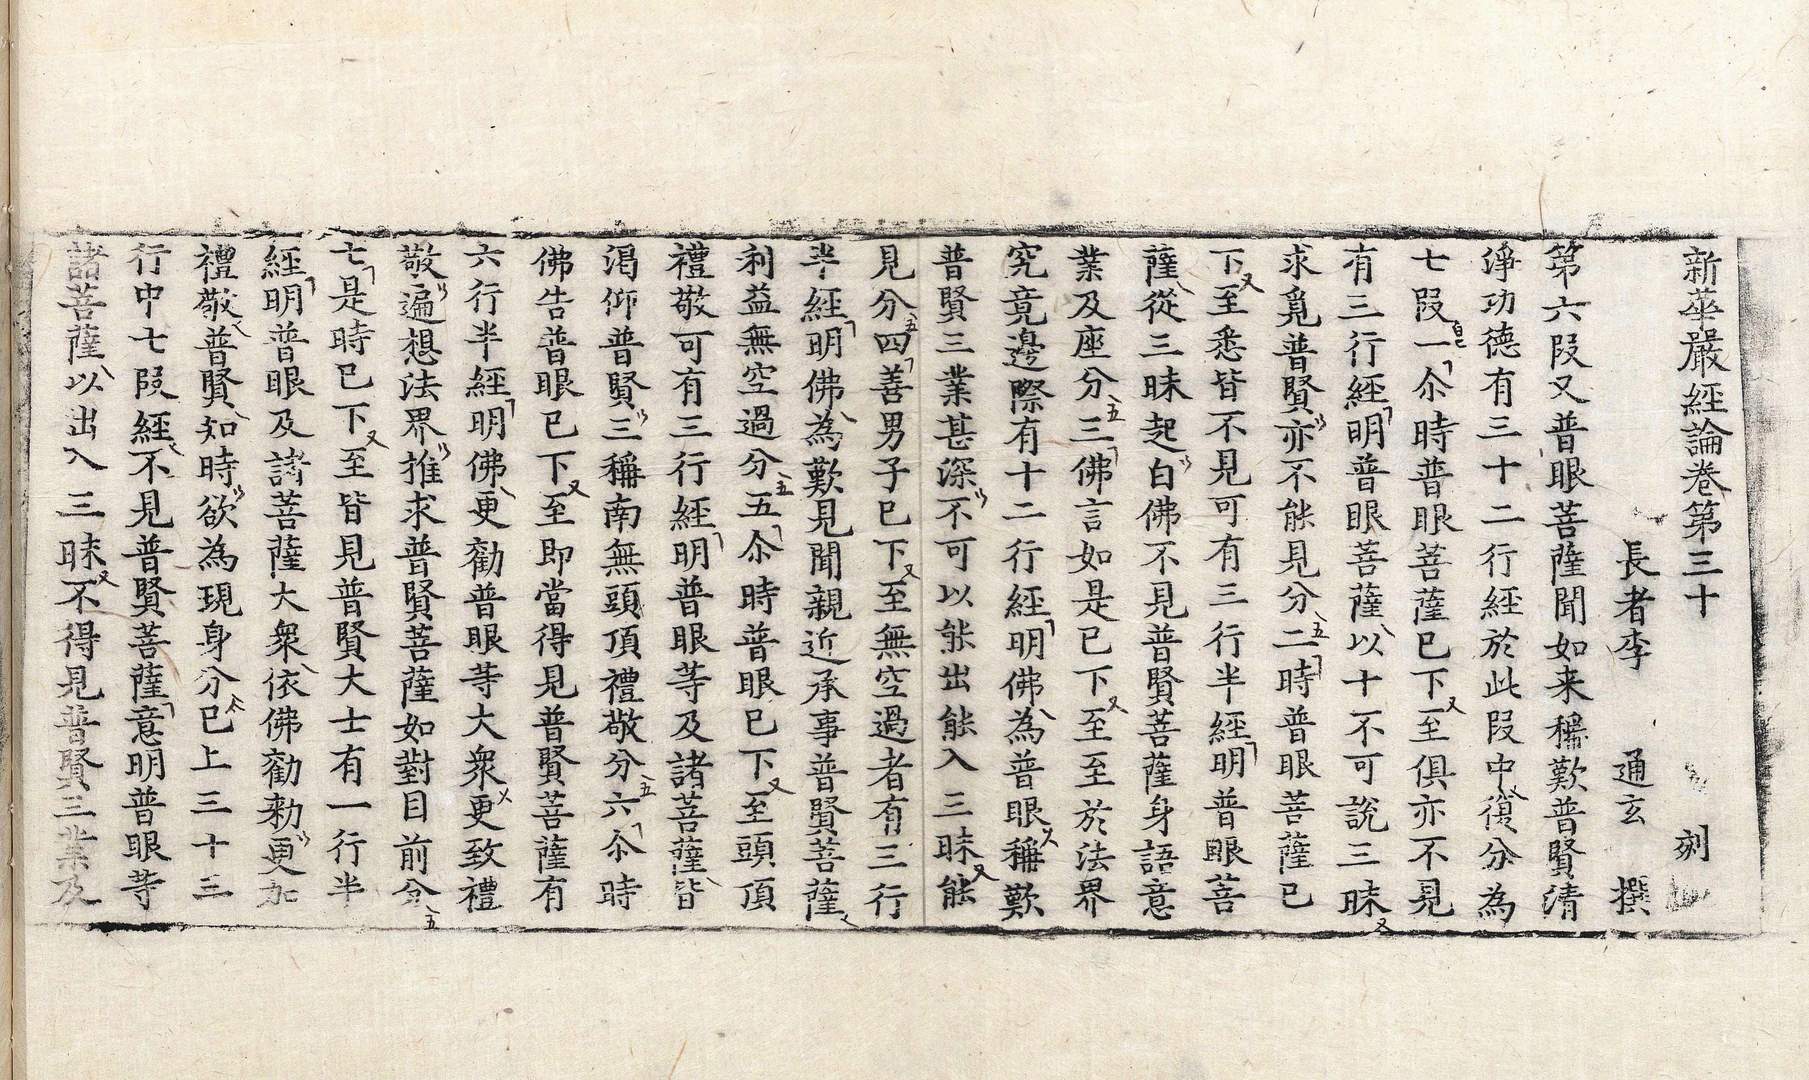 新華嚴經論卷第三十 剜
長者李 通玄 撰
第六段又普眼菩薩聞如来稱歎普賢清
淨功德有三十二行經於此段中復分為
七段一尒時普眼菩薩已下至俱亦不見
有三行經明普眼菩薩以十不可說三昧
求覓普賢亦不能見分二時普眼菩薩已
下至悉皆不見可有三行半經明普眼菩
薩從三昧起白佛不見普賢菩薩身語意
業及座分三佛言如是已下至至於法界
究竟邊際有十二行經明佛為普眼稱歎
普賢三業甚深不可以能出能入三昧能
見分四善男子已下至無空過者有三行
半經明佛為歎見聞親近承事普賢菩薩
利益無空過分五尒時普眼已下至頭頂
禮敬可有三行經明普眼等及諸菩薩皆
渴仰普賢三稱南無頭頂禮敬分六尒時
佛告普眼已下至即當得見普賢菩薩有
六行半經明佛更勸普眼等大衆更致禮
敬遍想法界推求普賢菩薩如對目前分
七是時已下至皆見普賢大士有一行半
經明普眼及諸菩薩大衆依佛勸勑更加
禮敬普賢如時欲為現身分已上三十三
行中七段經不見普賢菩薩意明普眼等
諸菩薩以出入三昧不得見普賢三業及